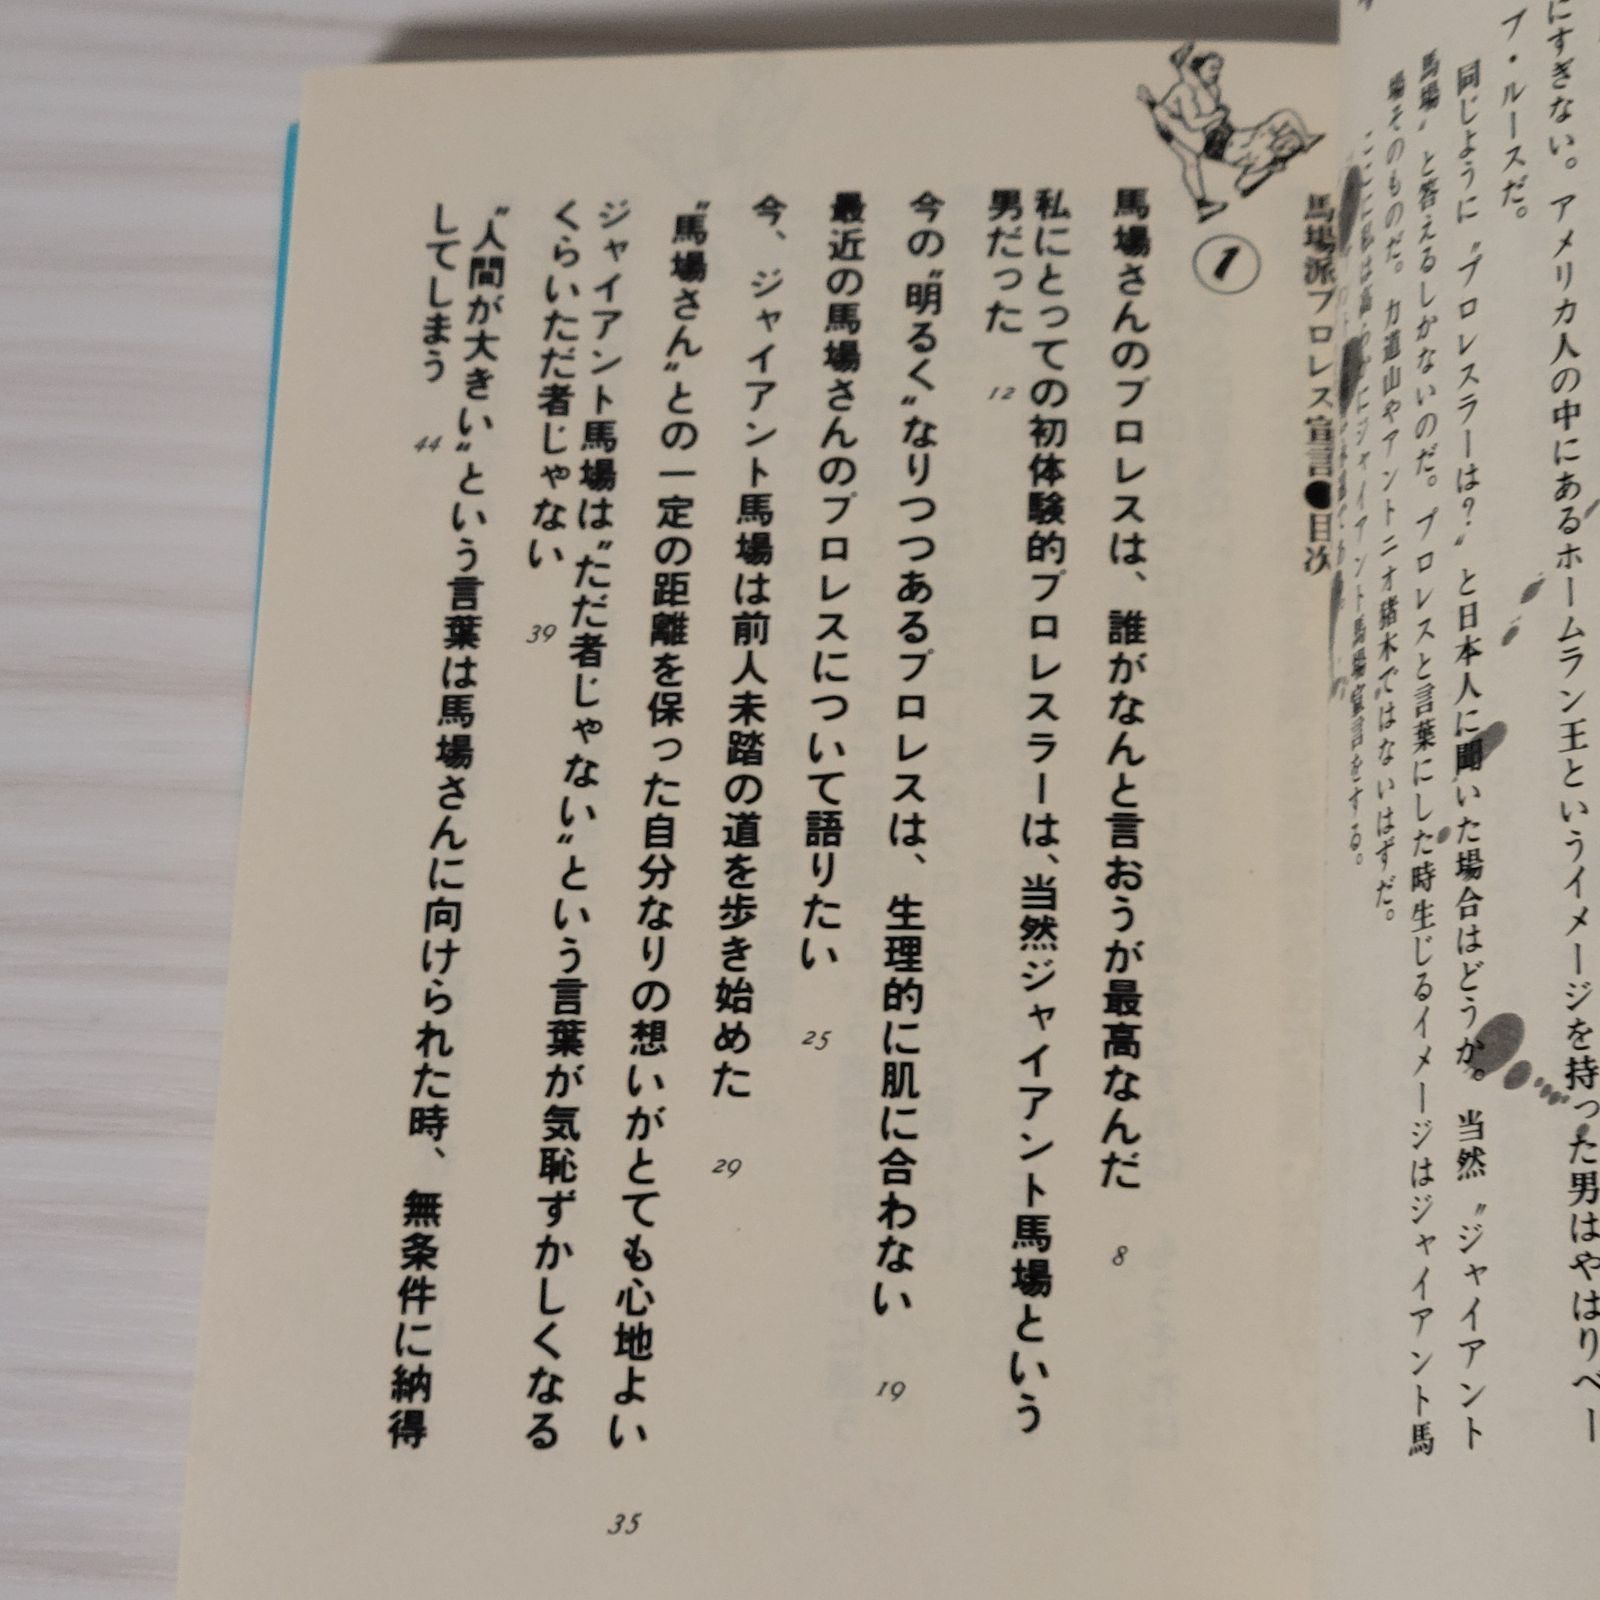 にすぎない。アメリカ人の中にあるホームラン王というイメージを持った男はやはりベー
ブ・ルースだ。
同じように〝プロレスラーは？〟と日本人に聞いた場合はどうか。当然〝ジャイアント
馬場〟と答えるしかないのだ。プロレスと言葉にした時生じるイメージはジャイアント馬
場そのものだ。力道山やアントニオ猪木ではないはずだ。
ここに私は高らかにジャイアント馬場宣言をする。
馬場派プロレス宣言●目次
1
馬場さんのプロレスは、誰がなんと言おうが最高なんだ 8
私にとっての初体験的プロレスラーは、当然ジャイアント馬場という
男だった 12
今の〝明るく〟なりつつあるプロレスは、生理的に肌に合わない 19
最近の馬場さんのプロレスについて語りたい 25
今、ジャイアント馬場は前人未踏の道を歩き始めた 29
〝馬場さん〟との一定の距離を保った自分なりの想いがとても心地よい 35
ジャイアント馬場は〝ただ者じゃない〟という言葉が気恥ずかしくなる
くらいただ者じゃない 39
〝人間が大きい〟という言葉は馬場さんに向けられた時、無条件に納得
してしまう 44